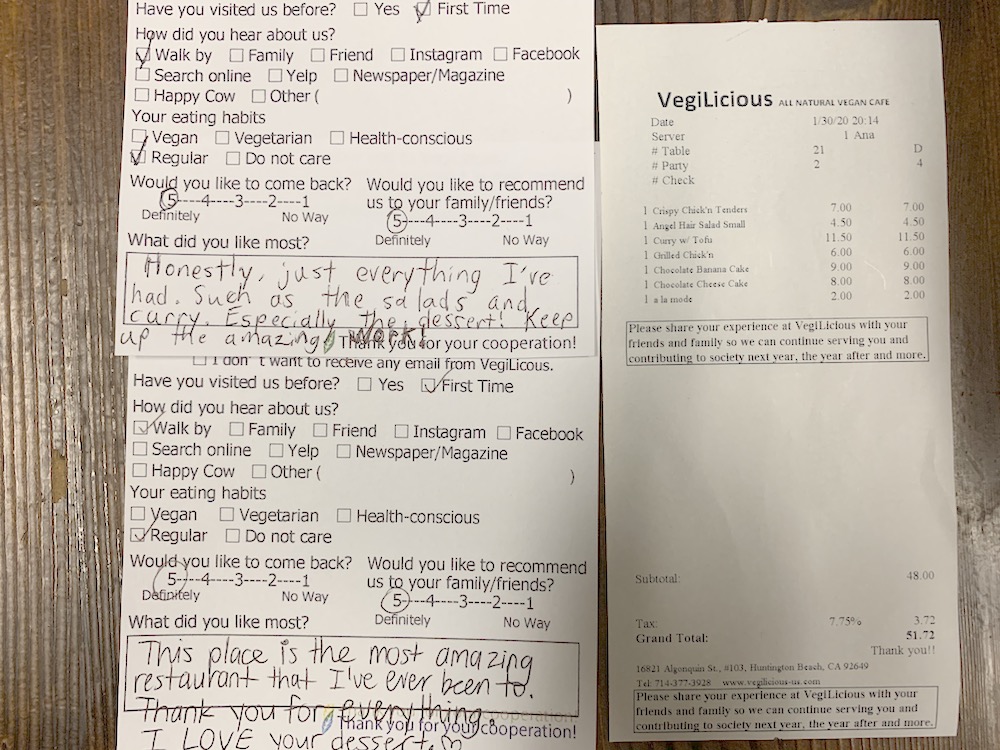 Have you visited us before? ☐ Yes ☑ First Time
How did you hear about us?
☑ Walk by ☐ Family ☐ Friend ☐ Instagram ☐ Facebook
☐ Search online ☐ Yelp ☐ Newspaper/Magazine
☐ Happy Cow ☐ Other ( )
Your eating habits
☐ Vegan ☐ Vegetarian ☐ Health-conscious
☑ Regular ☐ Do not care
Would you like to come back?
5----4----3----2----1
Definitely No Way
Would you like to recommend
us to your family/friends?
5----4----3----2----1
Definitely No Way
What did you like most?
Honestly, just everything I've
had. Such as the salads and
curry. Especially the dessert! Keep
up the amazing work!
Thank you for your cooperation!
☐ I don't want to receive any email from VegiLicous.
Have you visited us before? ☐ Yes ☑ First Time
How did you hear about us?
☑ Walk by ☐ Family ☐ Friend ☐ Instagram ☐ Facebook
☐ Search online ☐ Yelp ☐ Newspaper/Magazine
☐ Happy Cow ☐ Other ( )
Your eating habits
☐ Vegan ☐ Vegetarian ☐ Health-conscious
☑ Regular ☐ Do not care
Would you like to come back?
5----4----3----2----1
Definitely No Way
Would you like to recommend
us to your family/friends?
5----4----3----2----1
Definitely No Way
What did you like most?
This place is the most amazing
restaurant that I've ever been to.
Thank you for everything.
Thank you for your cooperation!
I LOVE your dessert.
VegiLicious ALL NATURAL VEGAN CAFE
Date 1/30/20 20:14
Server 1 Ana
# Table 21 D
# Party 2 4
# Check
1 Crispy Chick'n Tenders 7.00 7.00
1 Angel Hair Salad Small 4.50 4.50
1 Curry w/ Tofu 11.50 11.50
1 Grilled Chick'n 6.00 6.00
1 Chocolate Banana Cake 9.00 9.00
1 Chocolate Cheese Cake 8.00 8.00
1 a la mode 2.00 2.00
Please share your experience at VegiLicious with your
friends and family so we can continue serving you and
contributing to society next year, the year after and more.
Subtotal: 48.00
Tax: 7.75% 3.72
Grand Total: 51.72
Thank you!!
16821 Algonquin St., #103, Huntington Beach, CA 92649
Tel: 714-377-3928 www.vegilicious-us.com
Please share your experience at VegiLicious with your
friends and family so we can continue serving you and
contributing to society next year, the year after and more.